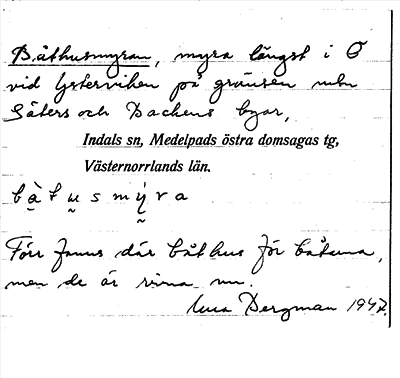 Båthusmyran, myra längst i Ö
vid Ysterviken på gränsen mln
Säters och Backens byar,
Indals sn, Medelpads östra domsagas tg,
Västernorrlands län.
bàtusmýra
Förr fanns där båthus för båtarna,
men de är rivna nu.
Bergman 1947.